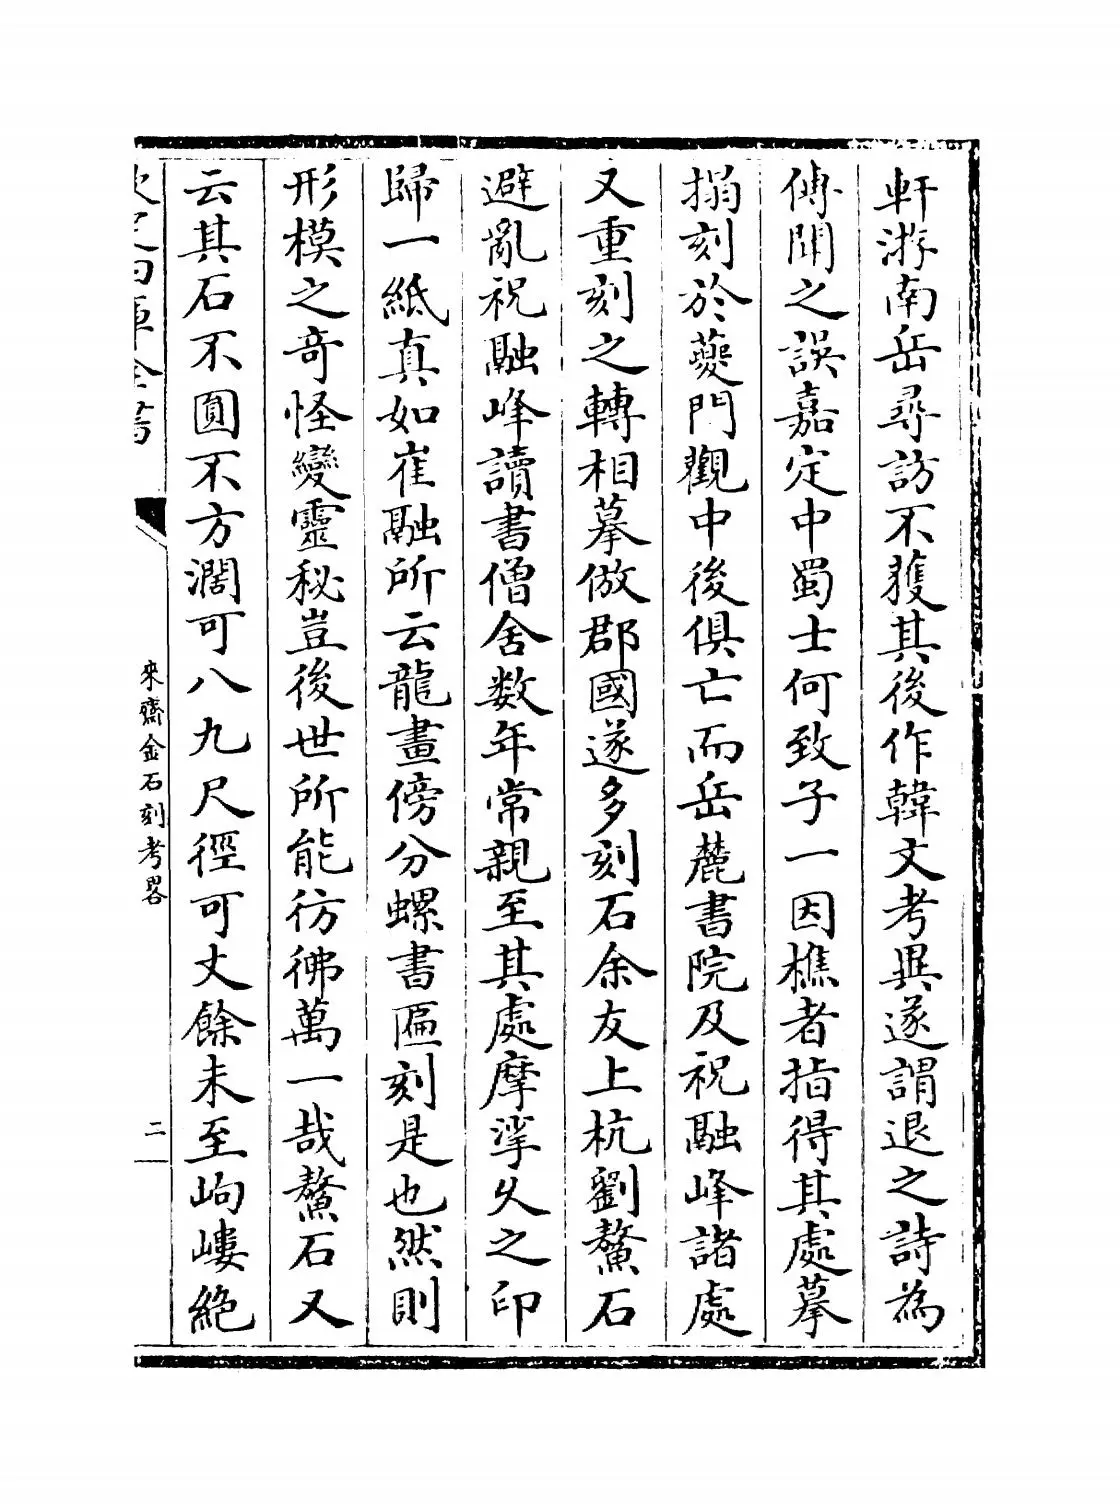 軒游南岳尋訪不獲其後作韓文考異遂謂退之詩為
傳聞之誤嘉定中蜀士何致子一因樵者指得其處摹
搨刻於夔門觀中後俱亡而岳麓書院及祝融峰諸處
又重刻之轉相摹倣郡國遂多刻石余友上杭劉鰲石
避亂祝融峰讀書僧舍数年常親至其處摩挲乆之印
歸一紙真如崔融所云龍畫傍分螺書匾刻是也然則
形模之奇怪變靈秘豈後世所能彷彿萬一哉鰲石又
云其石不圓不方濶可八九尺徑可丈餘未至岣嶁絕
欽定四庫全書
來齋金石刻考畧
二